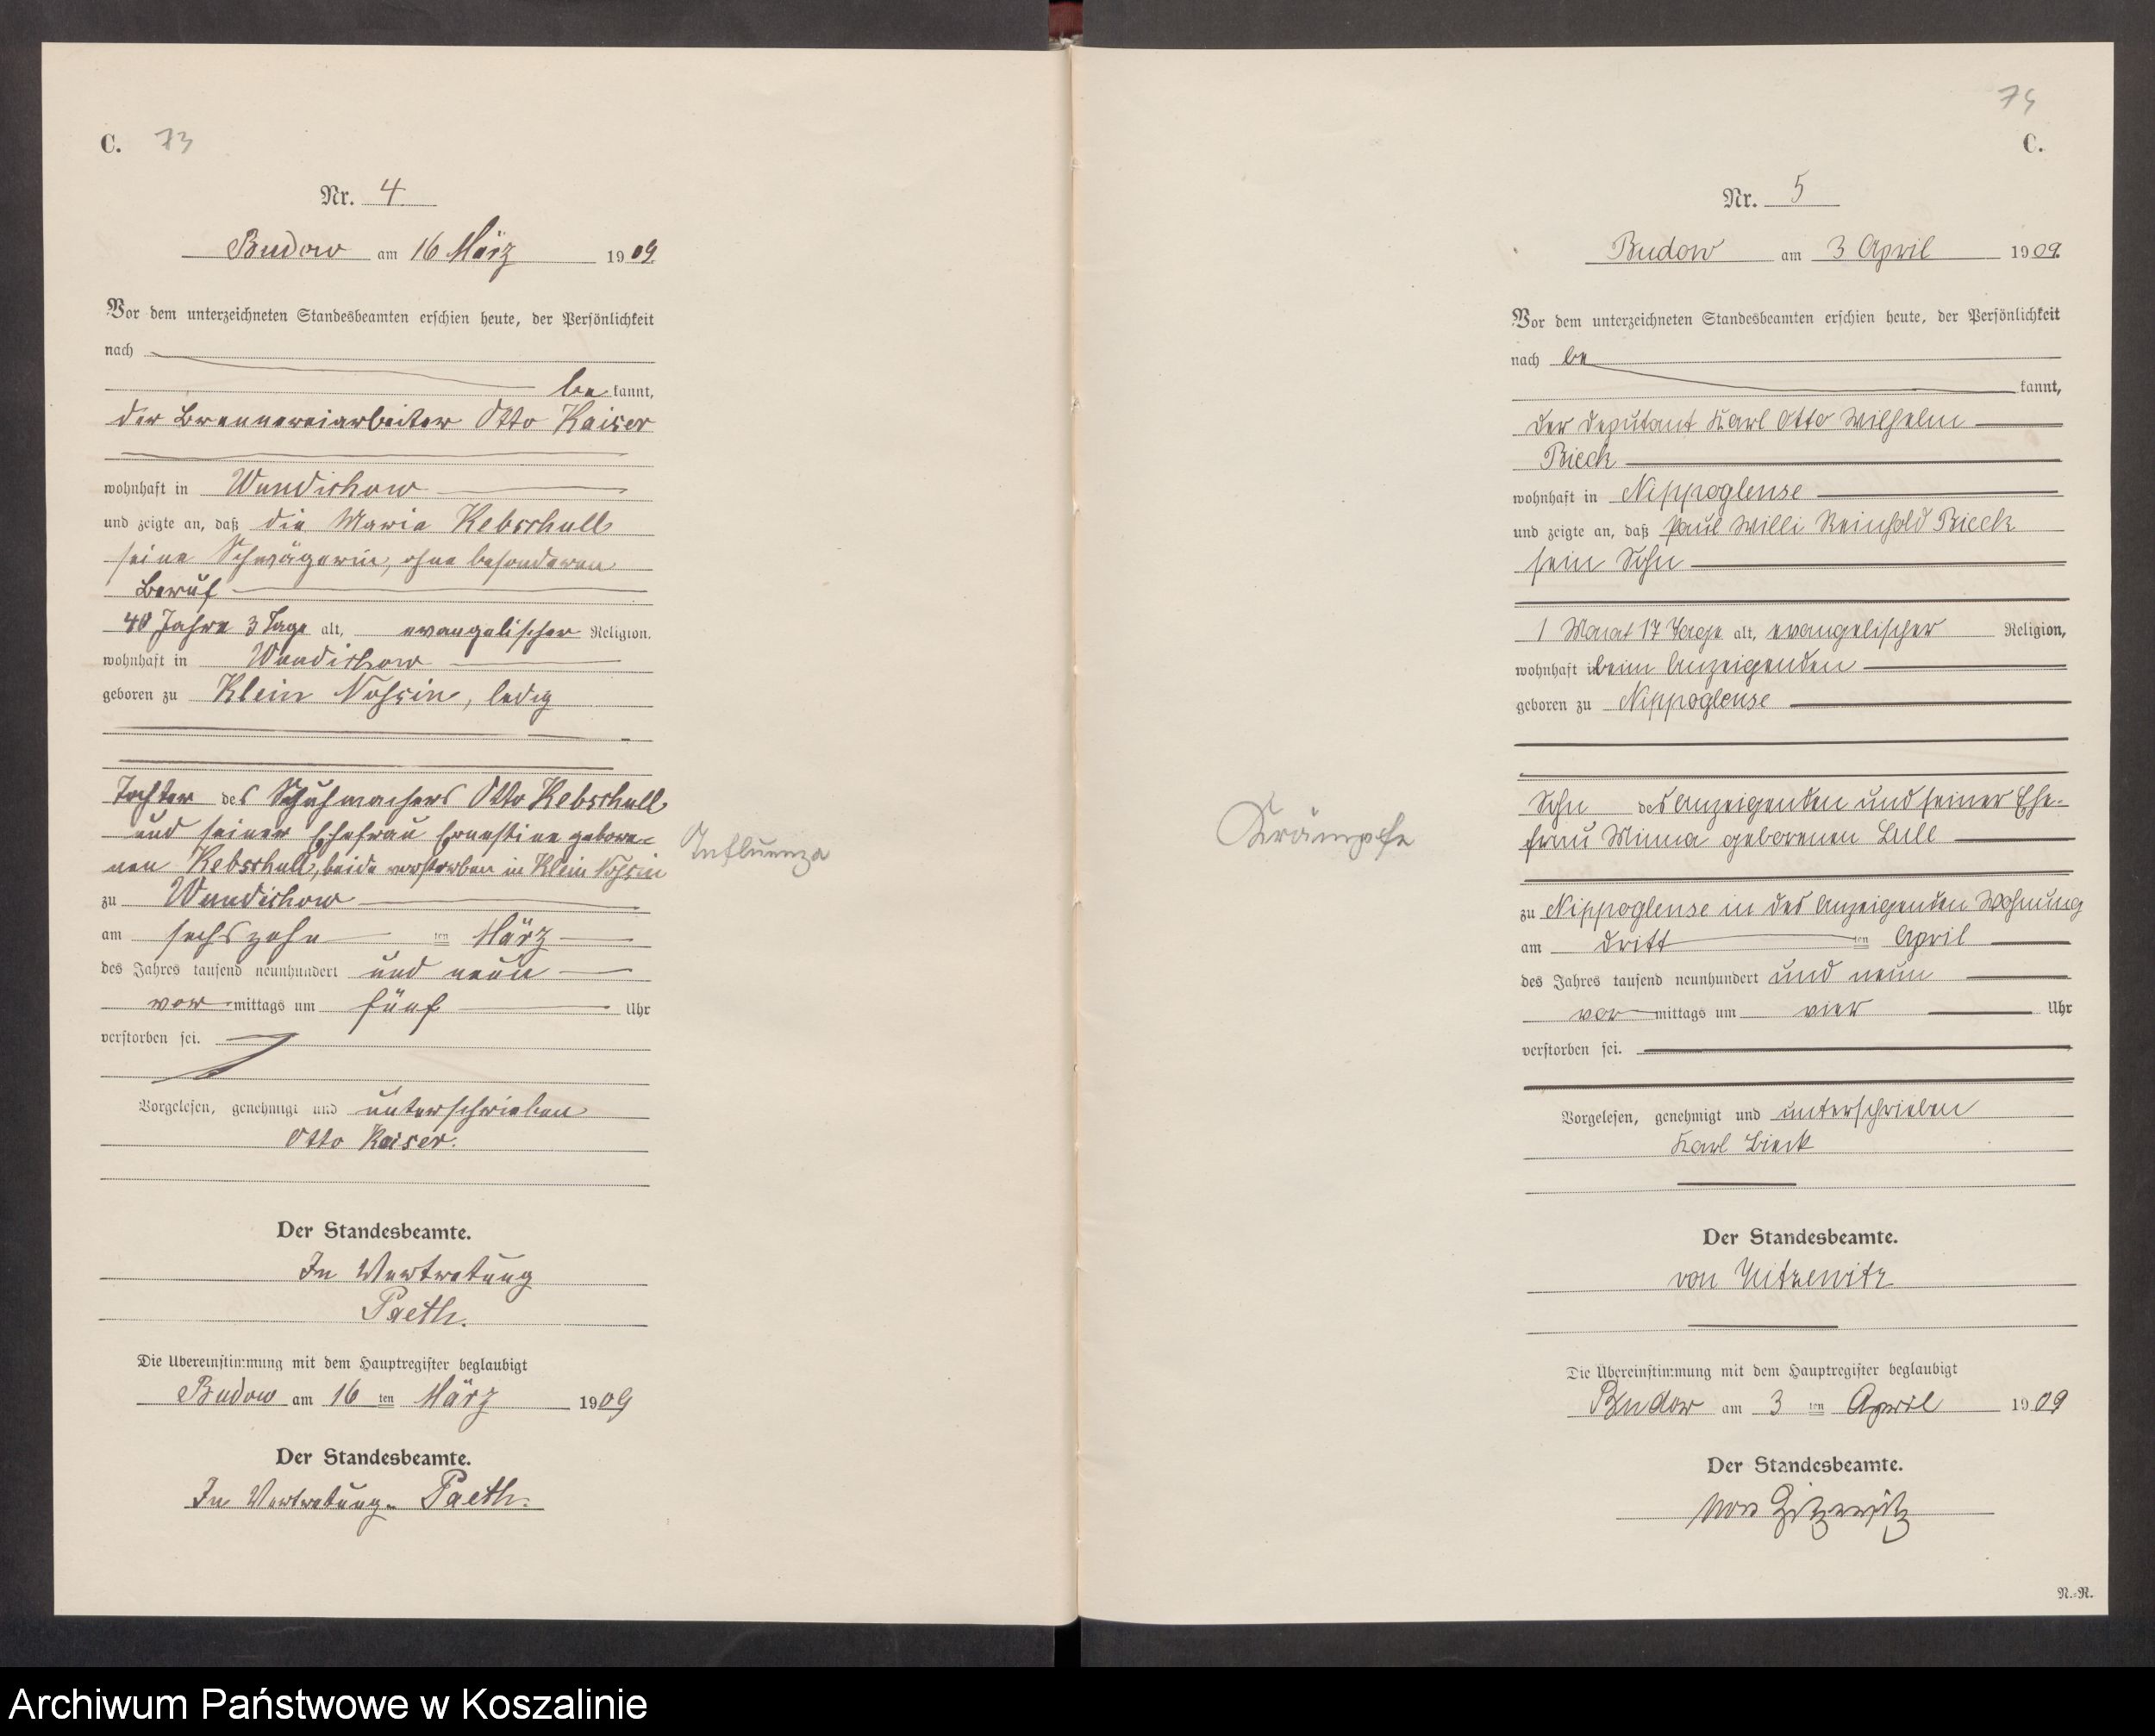 C. 73
Nr. 4
Budow am 16 März 1909
Vor dem unterzeichneten Standesbeamten erschien heute, der Persönlichkeit
nach
be kannt,
der Brennereiarbeiter Otto Kaiser
wohnhaft in Wundichow
und zeigte an, daß die Maria Kebschull
seine Schwägerin, ohne besonderen
Beruf
40 Jahre 3 Tage alt, evangelischer Religion,
wohnhaft in Wundichow
geboren zu Klein Nossin, ledig
Tochter des Schuhmachers Otto Kebschull
und seiner Ehefrau Ernestine gebore-
nen Kebschull, beide verstorben in Klein Nossin
Influenza
zu Wundichow
am sechszehn ten März
des Jahres tausend neunhundert und neun
vor mittags um fünf Uhr
verstorben sei.
Vorgelesen, genehmigt und unterschrieben
Otto Kaiser.
Der Standesbeamte.
In Vertretung
Paeth.
Die Übereinstimmung mit dem Hauptregister beglaubigt
Budow am 16 ten März 1909
Der Standesbeamte.
In Vertretung. Paeth.
C.
Nr. 5
Budow am 3 April 1909.
Vor dem unterzeichneten Standesbeamten erschien heute, der Persönlichkeit
nach be
kannt,
der Deputant Karl Otto Wilhelm
Bieck
wohnhaft in Nippoglense
und zeigte an, daß Paul Willi Reinhold Bieck
sein Sohn
1 Monat 17 Tage alt, evangelischer Religion,
wohnhaft in beim Anzeigenden
geboren zu Nippoglense
Sohn des Anzeigenden und seiner Ehe-
frau Minna geborenen Lull
Krämpfe
zu Nippoglense in des Anzeigenden Wohnung
am dritt ten April
des Jahres tausend neunhundert und neun
vor mittags um vier Uhr
verstorben sei.
Vorgelesen, genehmigt und unterschrieben
Karl Bieck
Der Standesbeamte.
von Zitzewitz
Die Übereinstimmung mit dem Hauptregister beglaubigt
Budow am 3 ten April 1909
Der Standesbeamte.
von Zitzewitz
N.-R.
Archiwum Państwowe w Koszalinie